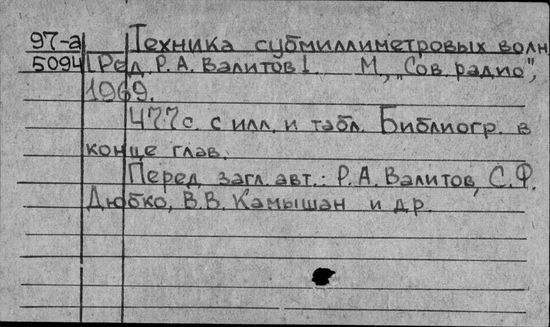 97-а Техника субмиллиметровых волн
5094 [Ред. Р. А. Валитов]. М., „Сов. радио",
1969.
477 с. с илл. и табл. Библиогр. в
конце глав.
Перед загл. авт.: Р. А. Валитов, С. Ф.
Дюбко, В. В. Камышан и др.